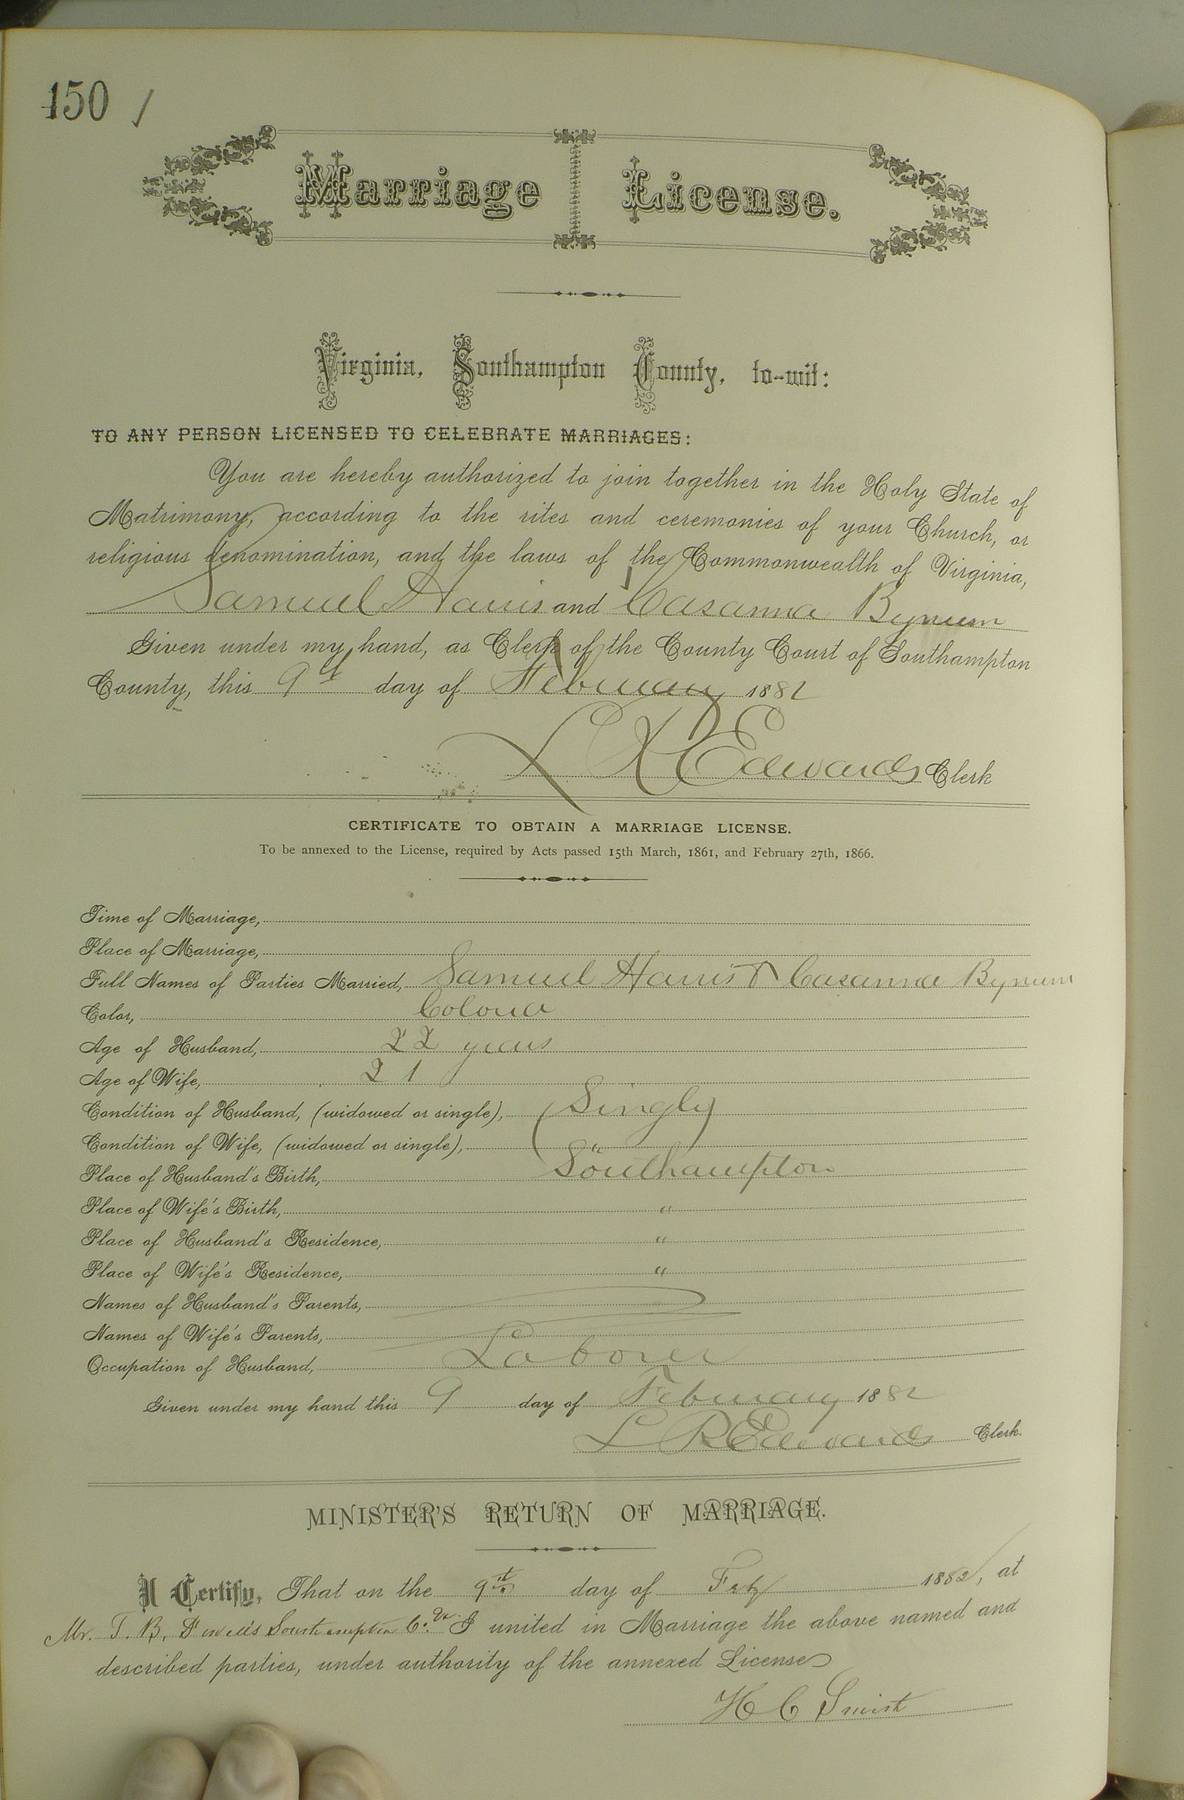 150
Marriage License.
Virginia, Southampton County, to-wit:
TO ANY PERSON LICENSED TO CELEBRATE MARRIAGES:
You are hereby authorized to join together in the Holy State of
Matrimony, according to the rites and ceremonies of your Church, or
religious denomination, and the laws of the Commonwealth of Virginia,
Samuel Harris and Casanna Bynum
Given under my hand, as Clerk of the County Court of Southampton
County, this 9th day of February 1882
L R Edwards Clerk
CERTIFICATE TO OBTAIN A MARRIAGE LICENSE.
To be annexed to the License, required by Acts passed 15th March, 1861, and February 27th, 1866.
Time of Marriage,
Place of Marriage,
Full Names of Parties Married, Samuel Harris & Casanna Bynum
Color, Colored
Age of Husband, 22 years
Age of Wife, 21
Condition of Husband, (widowed or single), Single
Condition of Wife, (widowed or single), "
Place of Husband's Birth, Southampton
Place of Wife's Birth, "
Place of Husband's Residence, "
Place of Wife's Residence, "
Names of Husband's Parents,
Names of Wife's Parents,
Occupation of Husband, Laborer
Given under my hand this 9 day of February 1882
L R Edwards Clerk.
MINISTER'S RETURN OF MARRIAGE.
I Certify, That on the 9th day of Feb 1882, at
Mr. T. B. Southampton Co. Va I united in Marriage the above named and
described parties, under authority of the annexed License
H C